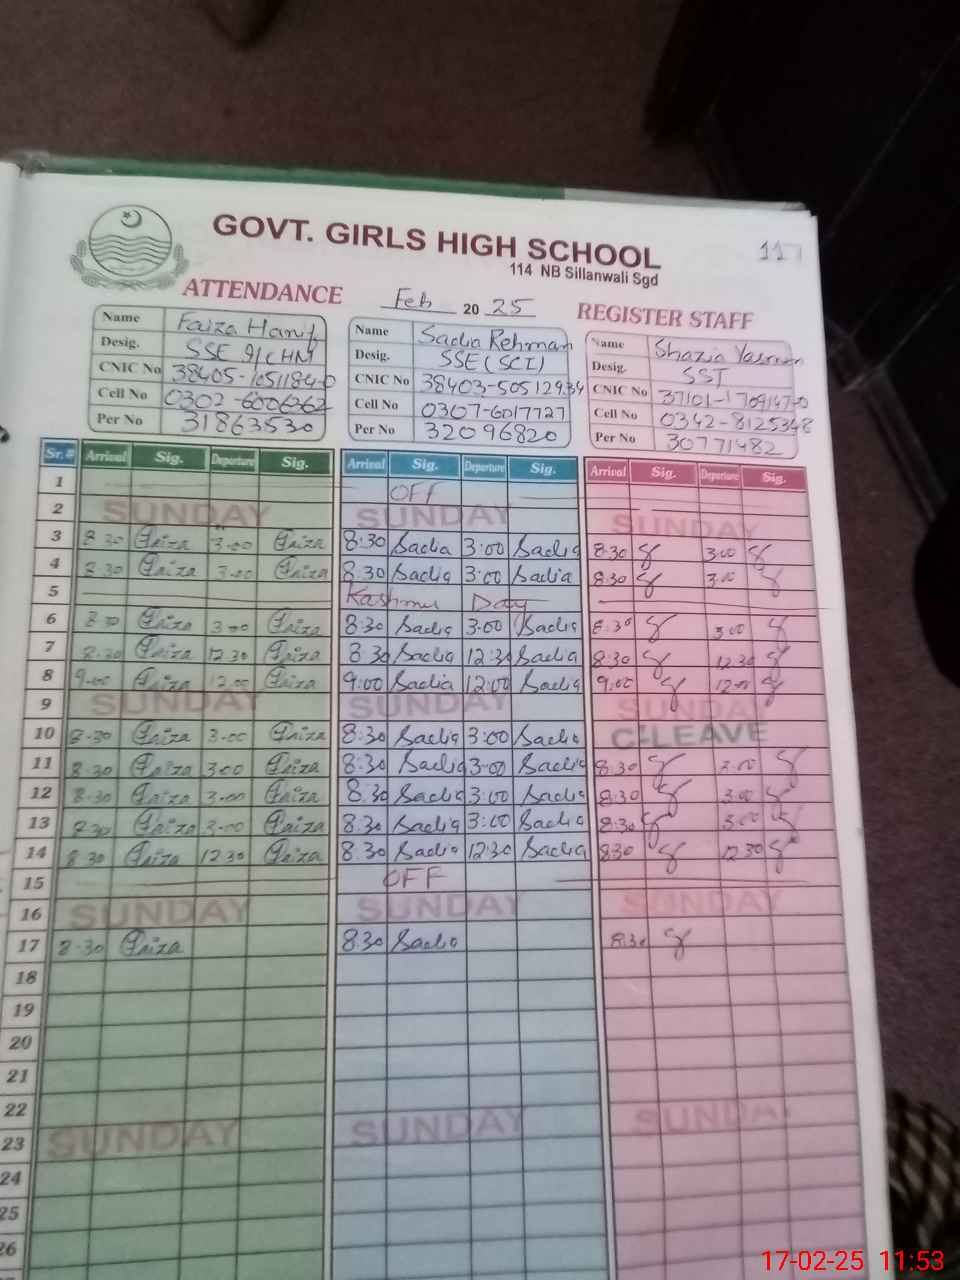 GOVT. GIRLS HIGH SCHOOL
117
114 NB Sillanwali Sgd
ATTENDANCE Feb 20 25 REGISTER STAFF
Name Faiza Hanif Name Sadia Rehman Name Shazia Yasmeen
Desig. SSE I/C HM Desig. SSE (SCI) Desig. SST
CNIC No CNIC No CNIC No
Cell No Cell No 0307-6017727 Cell No 0342-8125348
Per No 31863530 Per No 32096820 Per No 30771482
Sr.# Arrival Sig. Departure Sig. Arrival Sig. Departure Sig. Arrival Sig. Departure Sig.
1 OFF
2 SUNDAY SUNDAY SUNDAY
3 8:30 Faiza 3:00 Faiza 8:30 Sadia 3:00 Sadia 8:30 3:00
4 8:30 Faiza 3:00 Faiza 8:30 Sadia 3:00 Sadia 8:30 3:00
5 Kashmir Day
6 8:30 Faiza 3:00 Faiza 8:30 Sadia 3:00 Sadia 8:30 3:00
7 8:30 Faiza 12:30 Faiza 8:30 Sadia 12:30 Sadia 8:30 12:30
8 9:00 Faiza 12:00 Faiza 9:00 Sadia 12:00 Sadia 9:00 12:00
9 SUNDAY SUNDAY SUNDAY
10 8:30 Faiza 3:00 Faiza 8:30 Sadia 3:00 Sadia C-LEAVE
11 8:30 Faiza 3:00 Faiza 8:30 Sadia 3:00 Sadia 8:30 3:00
12 8:30 Faiza 3:00 Faiza 8:30 Sadia 3:00 Sadia 8:30 3:00
13 8:30 Faiza 3:00 Faiza 8:30 Sadia 3:00 Sadia 8:30 3:00
14 8:30 Faiza 12:30 Faiza 8:30 Sadia 12:30 Sadia 8:30 12:30
15 OFF
16 SUNDAY SUNDAY SUNDAY
17 8:30 Faiza 8:30 Sadia 8:30
18
19
20
21
22
23 SUNDAY SUNDAY SUNDAY
24
25
26
17-02-25 11:53